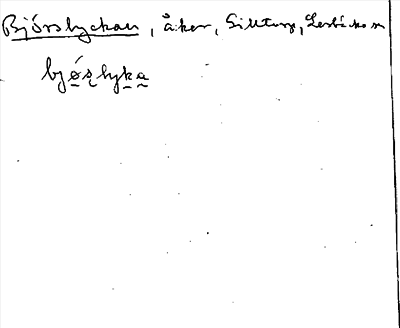 Björslyckan, åker, Silltorp, Lerbäcks sn
bjǿs̨lyka